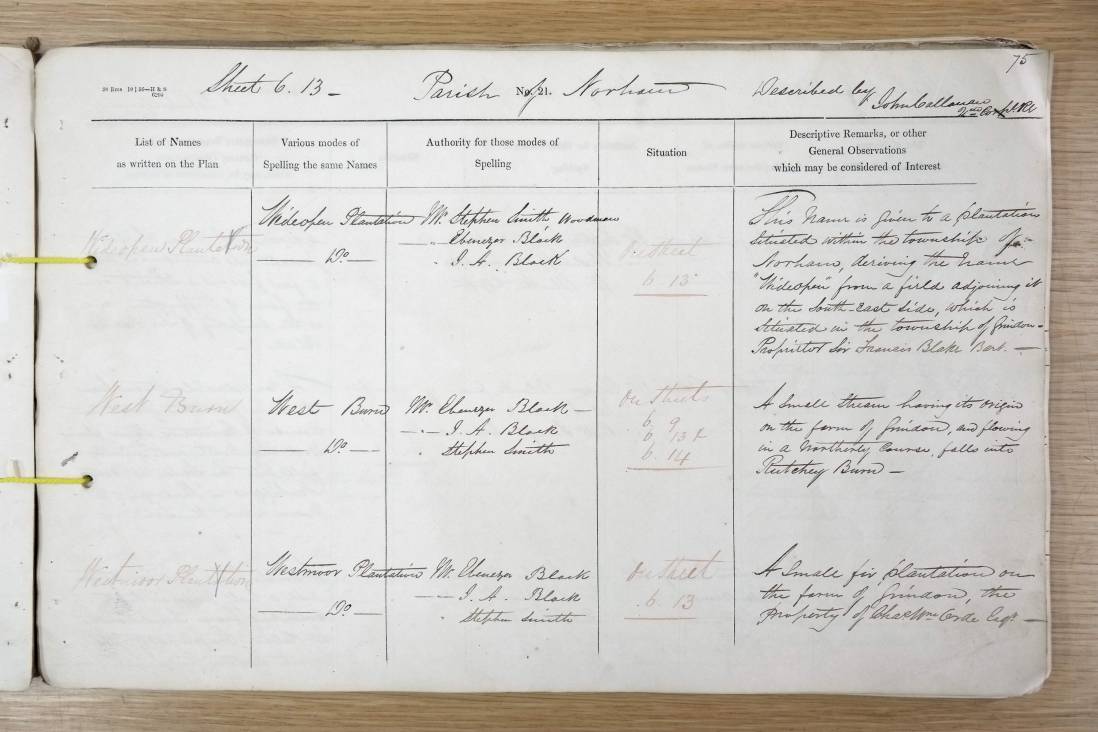 75
20 Rms 10 | 59—H & S
6204
Sheet 6. 13 - Parish No. 21. of Norham Described by John Callanan
2nd Corpl RE
List of Names
as written on the Plan
Various modes of
Spelling the same Names
Authority for those modes of
Spelling
Situation
Descriptive Remarks, or other
General Observations
which may be considered of Interest
Wideopen Plantation
Wideopen Plantation
Do.
Mr. Stephen Smith Woodman
" Ebenezer Black
" J. A. Black
On sheet
6. 13
This Name is given to a plantation
situated within the township of
Norham, deriving the Name
"Wideopen" from a field adjoining it
on the South-East side, which is
situated in the township of Grindon-
Proprietor Sir Francis Blake Bart. —
West Burn
West Burn
Do.
Mr. Ebenezer Black —
" J. A. Black
" Stephen Smith
On Sheets
6. 9
6. 13 &
6. 14
A Small Stream having its origin
on the farm of Grindon, and flowing
in a Northerly Course, falls into
Rutchey Burn —
Westmoor Plantation
Westmoor Plantation
Do.
Mr. Ebenezer Black
" J. A. Black
" Stephen Smith
On Sheet
6. 13
A Small fir plantation on
the farm of Grindon, the
property of Chas Wm Orde Esqr. —